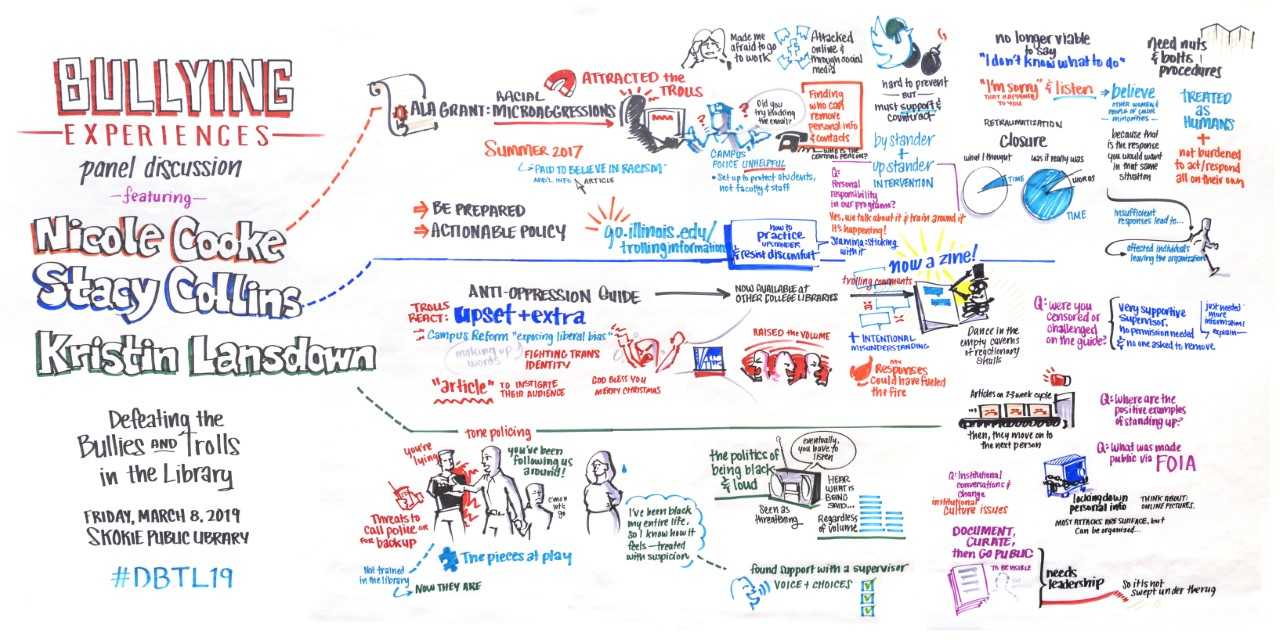 BULLYING
EXPERIENCES
panel discussion
featuring
Nicole Cooke
Stacy Collins
Kristin Lansdown
Defeating the
Bullies AND Trolls
in the Library
FRIDAY, MARCH 8, 2019
SKOKIE PUBLIC LIBRARY
#DBTL19
ALA GRANT: RACIAL
MICROAGGRESSIONS
ATTRACTED the
TROLLS
SUMMER 2017
"PAID TO BELIEVE IN RACISM"
ARTICLE
BE PREPARED
ACTIONABLE POLICY
go.illinois.edu/
trollinginformation
Made me
afraid to go
to work
Attacked
online &
through social
media
Did you
try blocking
the email?
CAMPUS
POLICE UNHELPFUL
• Set up to protect students,
not faculty & staff
Finding
who can
remove
personal info
& contacts
hard to prevent
BUT
must support &
counteract
by stander
+
upstander
INTERVENTION
Q:
Personal
responsibility
in our programs?
Yes, we talk about it & train around it
It's happening!
Stamina: sticking
with it
how to
practice
UPSTANDER
& resist discomfort
no longer viable
to say
"I don't know what to do"
"I'm sorry" & listen
THAT HAPPENED
TO YOU
believe
OTHER WOMEN &
PEOPLE OF COLOR
MINORITIES
because that
is the response
you would want
in that same
situation
RETRAUMATIZATION
closure
what I thought
was it really was
TIME
WORDS
TIME
need nuts
& bolts
procedures
TREATED
as
HUMANS
+
not burdened
to act/respond
all on their own
Insufficient
responses lead to...
affected individuals
leaving the organization
ANTI-OPPRESSION GUIDE
NOW AVAILABLE AT
OTHER COLLEGE LIBRARIES
now a zine!
trolling comments
TROLLS
REACT: upset + extra
Campus Reform "exposing liberal bias"
making up
words
FIGHTING TRANS
IDENTITY
"article" TO INSTIGATE
THEIR AUDIENCE
GOD BLESS YOU
MERRY CHRISTMAS
RAISED the VOLUME
+ INTENTIONAL
MISUNDERSTANDING
MY
Responses
could have fueled
the fire
Dance in the
empty caverns
of reactionary
skulls
Q: were you
censored or
challenged
on the guide?
Very supportive
Supervisor.
No permission needed
& no one asked to remove.
just needed
more
information!
explain
Articles on 2-3 week cycle
then, they move on to
the next person
Q: Where are the
positive examples
of standing up?
Q: What was made
public via FOIA
tone policing
you're
lying!
you've been
following us
around!
c'mon
let's
go
Threats to
call police or
for backup
The pieces at play
Not trained
in the library
NOW THEY ARE
I've been black
my entire life,
so I know how it
feels—treated
with suspicion
the politics of
being black
& loud
eventually,
you have to
listen
Seen as
threatening
HEAR
WHAT IS
BEING
SAID...
Regardless
of volume
found support with a supervisor
VOICE + CHOICES
Q: Institutional
conversations &
change
institutional
culture issues
locking down
personal info
THINK ABOUT:
ONLINE PICTURES.
MOST ATTACKS ARE SURFACE, but
Can be organized...
DOCUMENT,
CURATE,
then GO PUBLIC
TO BE VISIBLE
needs
leadership
So it is not
swept under the rug